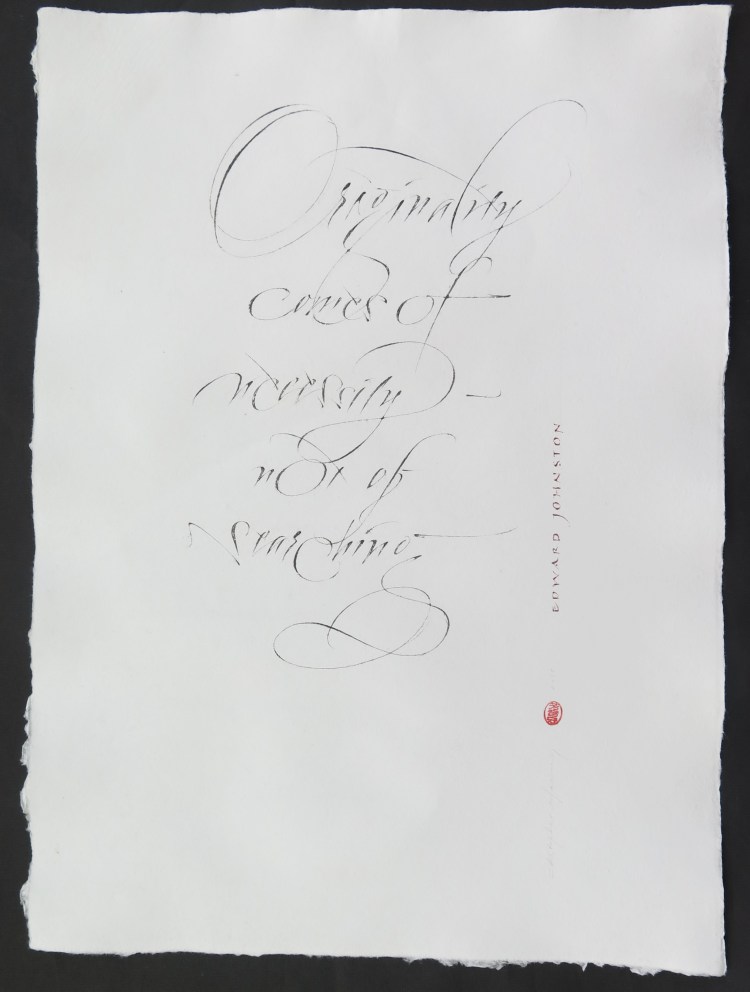 Originality
comes of
necessity –
not of
searching
EDWARD JOHNSTON